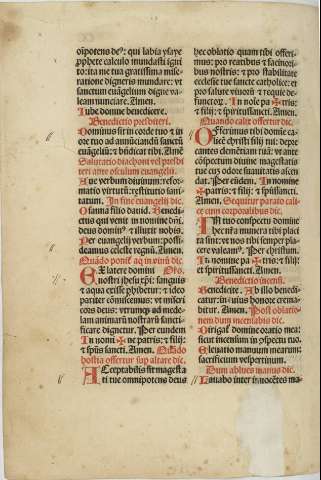 oĩpotens de⁹: qui labia ysaye
pphete calculo mundasti igni
to: ita me tua gratissima mise-
ratione digneris mundare: vt
sanctum euãgelium digne va-
leam nunciare. Amen.
Iube domne benedicere.
Benedictio presbiteri.
Dominus sit in corde tuo ⁊ in
ore tuo ad annũciandũ sanctũ
euãgeliũ: ⁊ bñdicat tibi. Amẽ
Salutatio diachoni vel presbi
teri ante osculum euangelij.
Aue verbum diuinum: refor-
matio virtutũ: restitutio sani-
tatum. In fine euangelij dic.
Osanna filio dauid. Benedi-
ctus qui venit in nomine dñi.
deus domin⁹ ⁊ illuxit nobis.
Per euangelij verbum: possi-
deamus celeste regnũ. Amen.
Quãdo ponit̃ aq̃ in vinũ dic.
Ex latere domini
nostri ihesu xp̃i: sanguis
⁊ aqua exisse phibetur: ⁊ ideo
pariter cõmiscemus: vt miseri
cors deus: vtrumq; ad mede-
lam animarũ nostrarũ sancti-
ficare dignetur. Per eundem
In noñi ✠ ne patris: ⁊ filij:
⁊ sp̃us sancti. Amen. Quãdo
hostia offertur sup altare dic.
Acceptabilis sit magesta
ti tue omnipotens deus
hec oblatio quam tibi offeri-
mus: pro reatibus ⁊ facinori-
bus nostris: ⁊ pro stabilitate
ecclesie tue sancte catholice: ⁊
pro salute viuorũ ⁊ requie de-
functoꝝ. In noĩe pa ✠ tris:
⁊ filij: ⁊ spiritussancti. Amen.
Quando calix offertur dic.
Offerimus tibi domie ca-
licẽ christi filij tui: depre
cantes clemẽtiam tuã: vt ante
cõspectum diuine magestatis
tue cum odore suauitatis ascen
dat. Per eũdem. In nomine
✠ patris: ⁊ filij: ⁊ sp̃ussancti.
Amen. Sequitur paratio cali-
cis cum corporalibus dic.
In tuo conspectu domine
hec nr̃a munera tibi placi
ta sint: vt nos tibi semper pla-
cere valeam⁹. Per christum.
In nomine pa ✠ tris: ⁊ filij:
et spiritussancti. Amen.
Benedictio incensi.
Benedicite. Ab illo benedi-
catur: in cuius honore crema-
bitur. Amen. Post oblatio-
nem dum incensabis dic.
Dirigat̃ domine oratio mea:
sicut incensum in cõspectu tuo.
Eleuatio manuum mearum:
sacrificium vespertinum.
Dum ablues manus dic.
Lauabo inter innocẽtes ma-